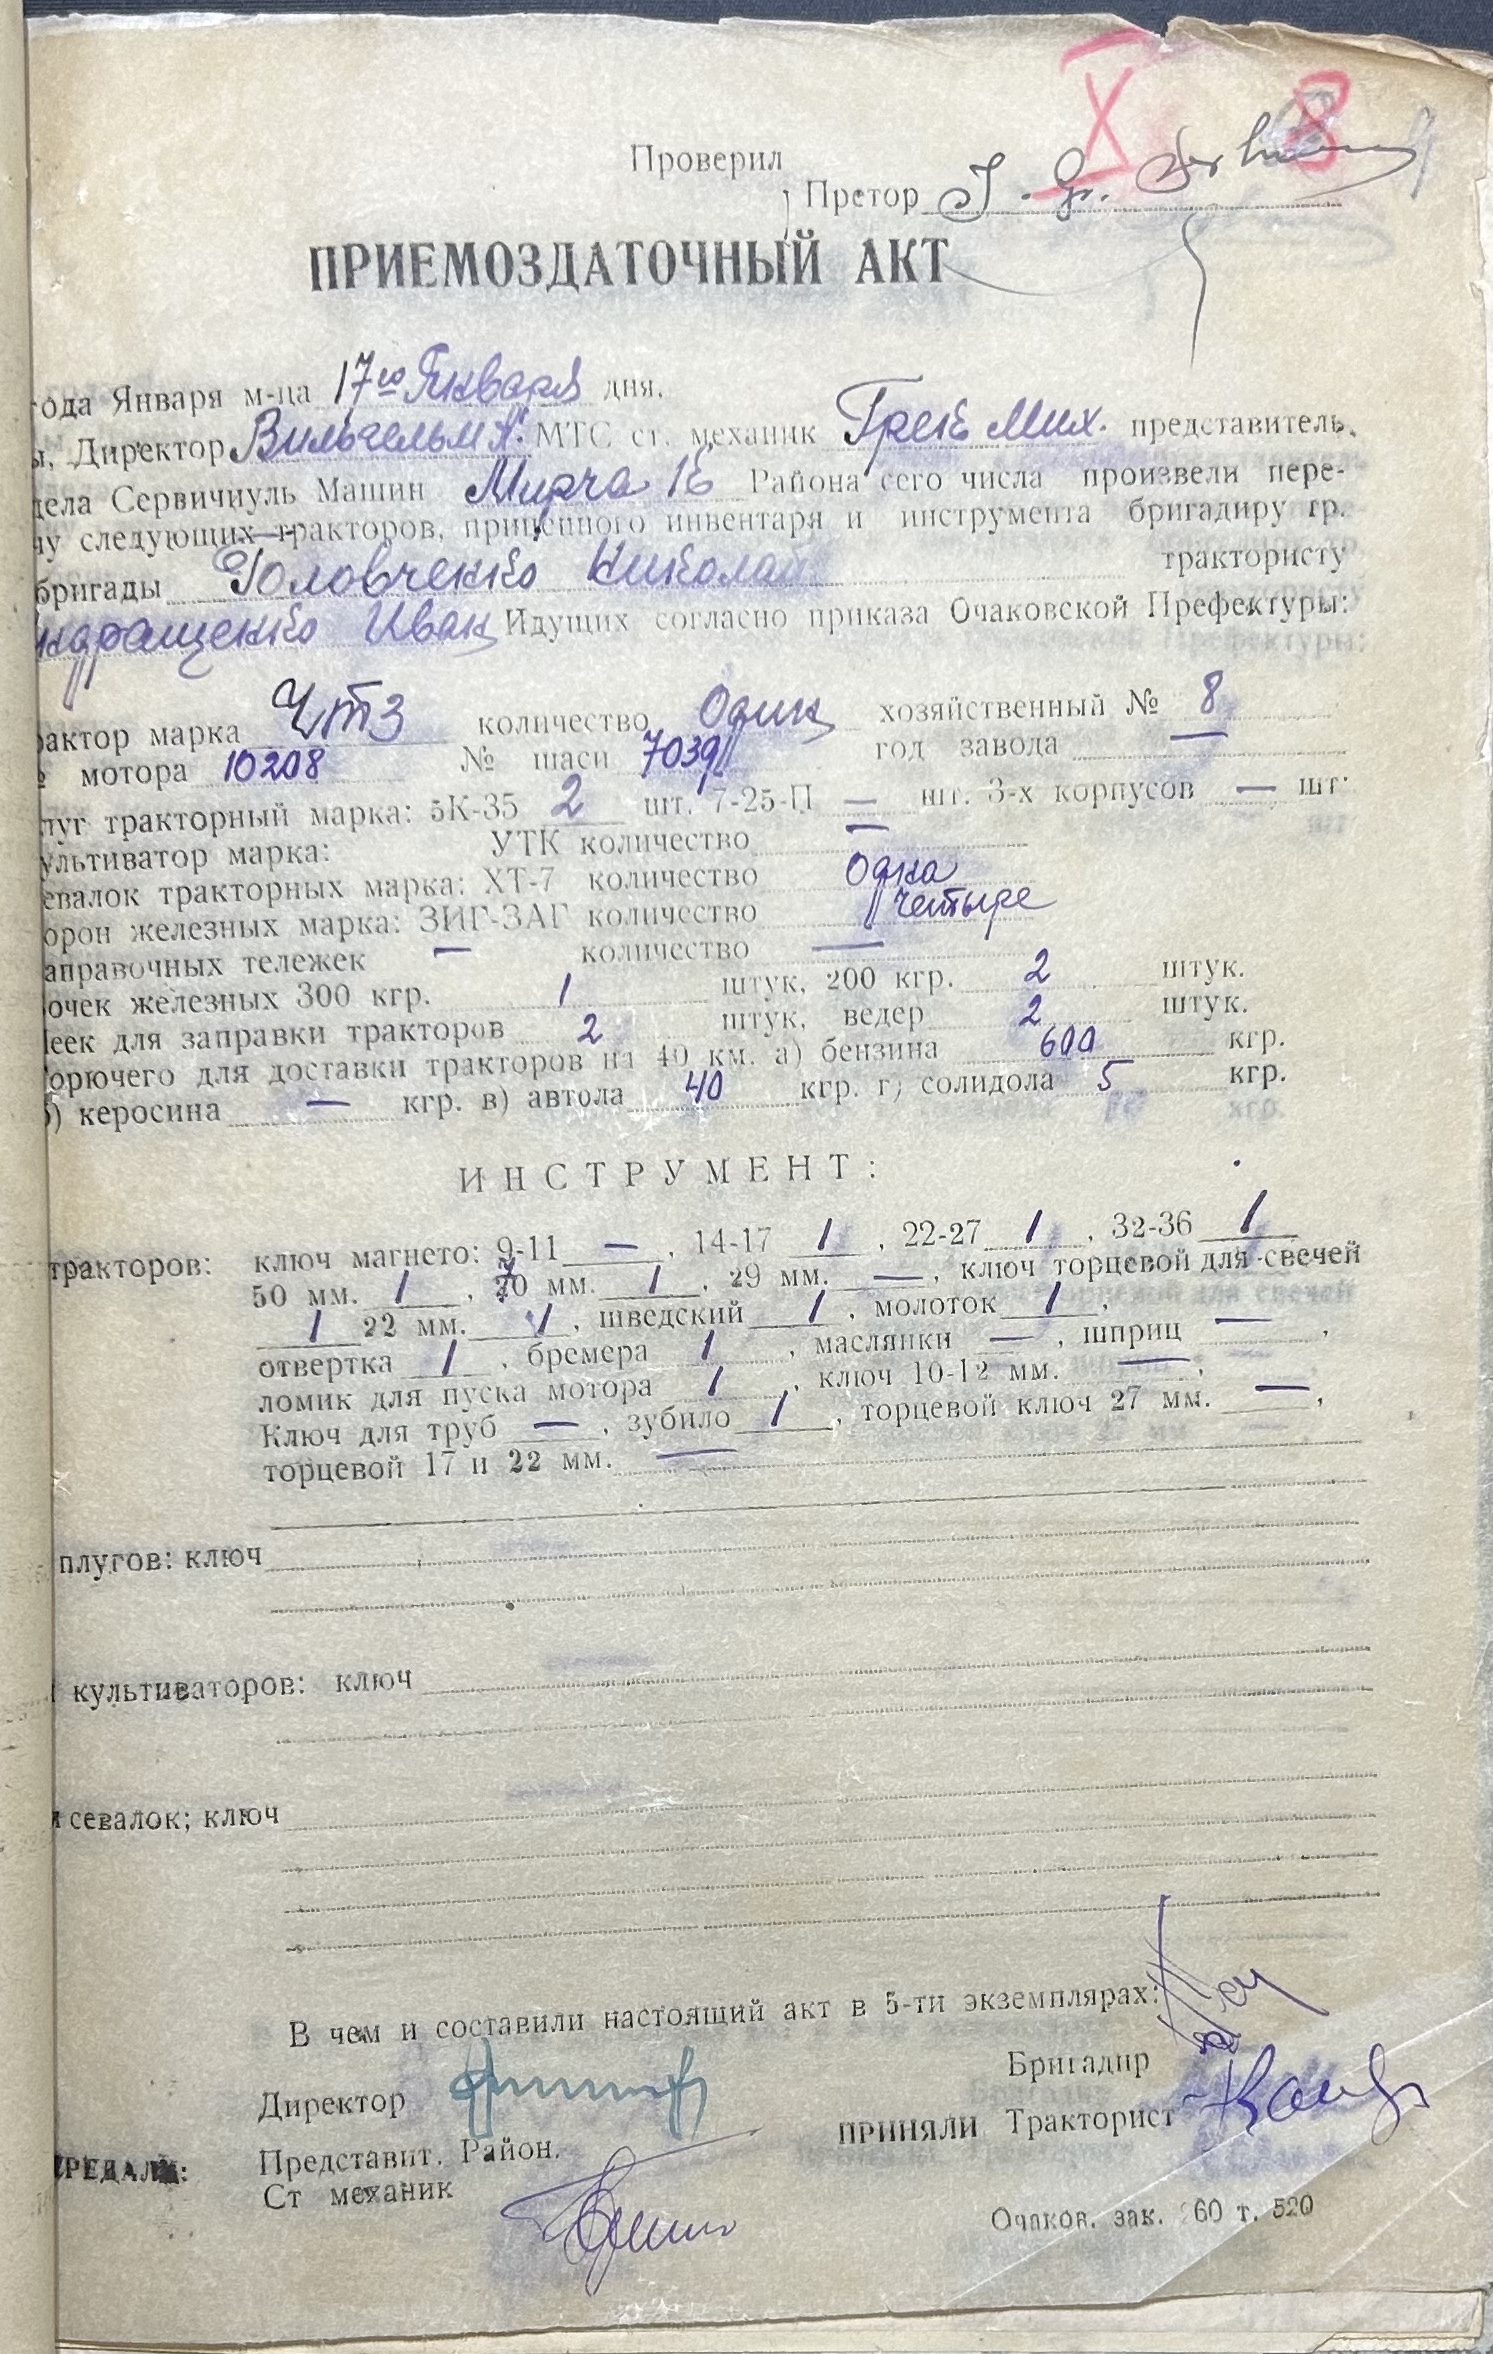 X 8
Проверил
Претор
ПРИЕМОЗДАТОЧНЫЙ АКТ
года Января м-ца 17го Января дня.
ы, Директор Вильгельм А. МТС ст. механик Греб Мих. представитель,
дела Сервичиуль Машин Мирча 1б Района сего числа произвели пере-
чу следующих тракторов, прицепного инвентаря и инструмента бригадиру гр.
бригады Головченко Николай трактористу
ндращенко Иван Идущих согласно приказа Очаковской Префектуры:
рактор марка ЧТЗ количество Один хозяйственный № 8
№ мотора 10208 № шаси 7039 год завода —
луг тракторный марка: 5К-35 2 шт. 7-25-П — шт. 3-х корпусов — шт.
ультиватор марка: УТК количество —
евалок тракторных марка: ХТ-7 количество Одна
орон железных марка: ЗИГ-ЗАГ количество Четыре
аправочных тележек — количество —
очек железных 300 кгр. 1 штук, 200 кгр. 2 штук.
леек для заправки тракторов 2 штук, ведер 2 штук.
орючего для доставки тракторов на 40 км. а) бензина 600 кгр.
б) керосина — кгр. в) автола 40 кгр. г) солидола 5 кгр.
ИНСТРУМЕНТ:
тракторов: ключ магнето: 9-11 — , 14-17 1 , 22-27 1 , 32-36 1
50 мм. 1 , 70 мм. 1 , 29 мм. — , ключ торцевой для свечей
1 22 мм. 1 , шведский 1 , молоток 1 ,
отвертка 1 , бремера 1 , маслянки — , шприц — ,
ломик для пуска мотора 1 , ключ 10-12 мм. — ,
Ключ для труб — , зубило 1 , торцевой ключ 27 мм. — ,
торцевой 17 и 22 мм. —
плугов: ключ
культиваторов: ключ
севалок; ключ
В чем и составили настоящий акт в 5-ти экземплярах:
Бригадир
Директор
ПРИНЯЛИ Тракторист
Представит. Район.
ЕРЕДАЛИ:
Ст механик
Очаков. зак. 260 т. 520